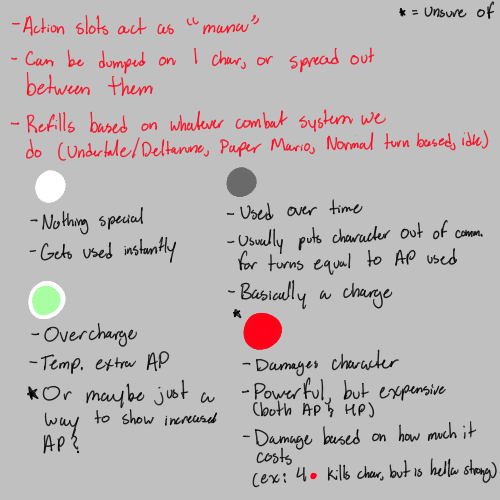 * = Unsure of
- Action slots act as "mana"
- Can be dumped on 1 char, or spread out
between them
- Refills based on whatever combat system we
do (Undertale/Deltarune, Paper Mario, Normal turn based, idle)
- Nothing special
- Gets used instantly
- Used over time
- Usually puts character out of comm.
for turns equal to AP used
- Basically a charge
- Overcharge
- Temp. extra AP
* Or maybe just a
way to show increased
AP?
*
- Damages character
- Powerful, but expensive
(both AP & HP)
- Damage based on how much it
costs
(ex: 4 kills char, but is hella strong)